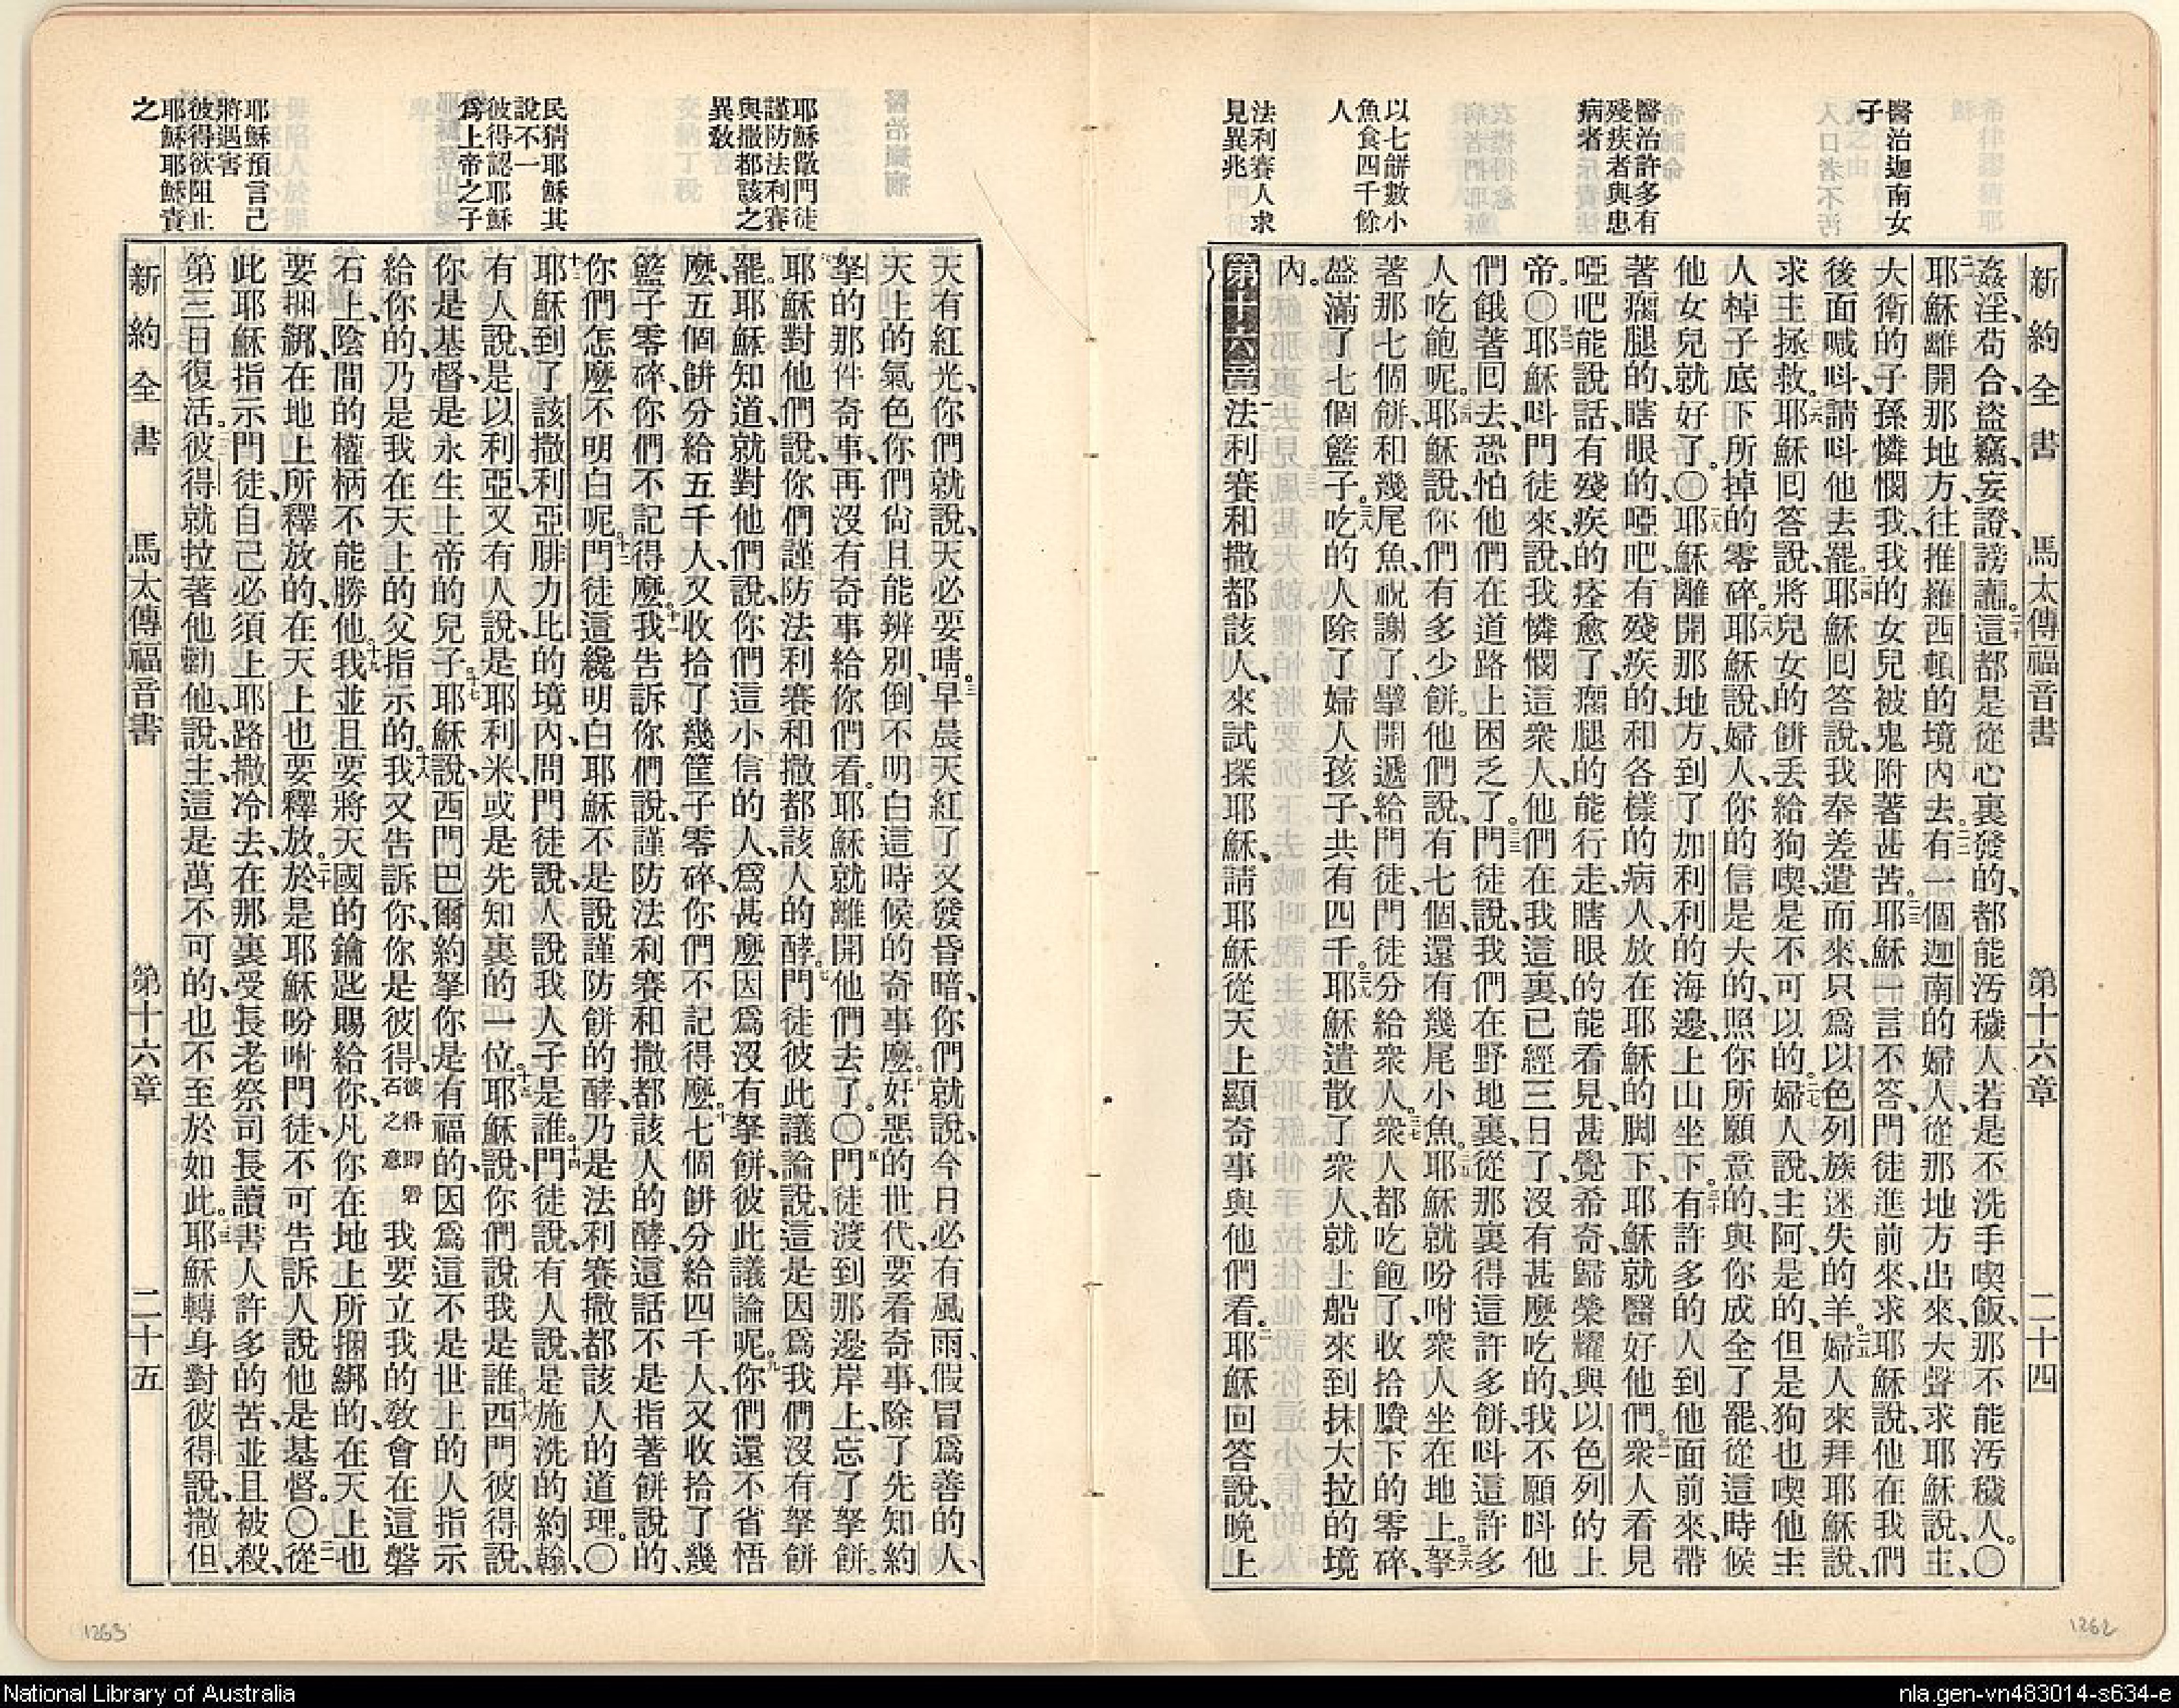 新約全書 馬太傳福音書 第十六章 二十四
醫治迦南女
子
醫治許多有
殘疾者與患
病者
以七餅數小
魚食四千餘
人
法利賽人求
見異兆
姦淫、苟合、盜竊、妄證、謗讟。二十這都是從心裏發的、都能污穢人、若是不洗手喫飯、那不能污穢人。〇
二一耶穌離開那地方、往推羅西頓的境內去。二二有一個迦南的婦人、從那地方出來、大聲求耶穌說、主、
大衛的子孫憐憫我、我的女兒被鬼附著甚苦。二三耶穌一言不答、門徒進前來、求耶穌說、他在我們
後面喊呌、請呌他去罷。二四耶穌回答說、我奉差遣而來、只爲以色列族迷失的羊。二五婦人來拜耶穌說、
求主拯救。二六耶穌回答說、將兒女的餅丟給狗喫、是不可以的。二七婦人說、主阿、是的、但是狗也喫他主
人棹子底下所掉的零碎。二八耶穌說、婦人、你的信是大的、照你所願意的、與你成全了罷、從這時候
他女兒就好了。〇二九耶穌離開那地方、到了加利利的海邊、上山坐下。三十有許多的人到他面前來、帶
著瘸腿的、瞎眼的、啞吧、有殘疾的、和各樣的病人、放在耶穌的脚下、耶穌就醫好他們。三一衆人看見
啞吧能說話、有殘疾的痊愈了、瘸腿的能行走、瞎眼的能看見、甚覺希奇、歸榮耀與以色列的上
帝。〇三二耶穌呌門徒來、說、我憐憫這衆人、他們在我這裏、已經三日了、沒有甚麼吃的、我不願呌他
們餓著回去、恐怕他們在道路上困乏了。三三門徒說、我們在野地裏、從那裏得這許多餅、呌這許多
人吃飽呢。三四耶穌說、你們有多少餅。他們說、有七個、還有幾尾小魚。三五耶穌就吩咐衆人坐在地上。三六拏
著那七個餅、和幾尾魚、祝謝了、擘開遞給門徒、門徒分給衆人。三七衆人都吃飽了、收拾賸下的零碎、
盛滿了七個籃子。三八吃的人除了婦人孩子、共有四千。三九耶穌遣散了衆人、就上船來到抹大拉的境
內。
第十六章一法利賽和撒都該人、來試探耶穌、請耶穌從天上顯奇事與他們看。二耶穌回答說、晚上
耶穌儆門徒
謹防法利賽
與撒都該之
異敎
民猜耶穌其
說不一
彼得認耶穌
爲上帝之子
耶穌預言己
將遇害
彼得欲阻止
耶穌耶穌責
之
天有紅光、你們就說、天必要晴。三早晨天紅了又發昏暗、你們就說、今日必有風雨、假冒爲善的人、
天上的氣色你們尙且能辨別、倒不明白這時候的奇事麼。四奸惡的世代、要看奇事、除了先知約
拏的那件奇事、再沒有奇事給你們看。耶穌就離開他們去了。〇五門徒渡到那邊岸上、忘了拏餅。
六耶穌對他們說、你們謹防法利賽和撒都該人的酵。七門徒彼此議論說、這是因爲我們沒有拏餅
罷。八耶穌知道、就對他們說、你們這小信的人、爲甚麼因爲沒有拏餅、彼此議論呢。九你們還不省悟
麼、五個餅分給五千人、又收拾了幾筐子零碎、你們不記得麼。十七個餅分給四千人、又收拾了幾
籃子零碎、你們不記得麼。十一我告訴你們說、謹防法利賽和撒都該人的酵、這話不是指著餅說的、
你們怎麼不明白呢。十二門徒這纔明白耶穌不是說謹防餅的酵、乃是法利賽撒都該人的道理。〇
十三耶穌到了該撒利亞腓力比的境內、問門徒說、人說我人子是誰。十四門徒說、有人說、是施洗的約翰、
有人說、是以利亞、又有人說、是耶利米、或是先知裏的一位。十五耶穌說、你們說我是誰。十六西門彼得說、
你是基督、是永生上帝的兒子。十七耶穌說、西門巴爾約拏、你是有福的、因爲這不是世上的人指示
給你的、乃是我在天上的父指示的。十八我又告訴你、你是彼得、彼得卽磐石之意我要立我的敎會在這磐
石上、陰間的權柄不能勝他。十九我並且要將天國的鑰匙賜給你、凡你在地上所捆綁的、在天上也
要捆綁、在地上所釋放的、在天上也要釋放。二十於是耶穌吩咐門徒、不可告訴人說他是基督。〇二一從
此耶穌指示門徒、自己必須上耶路撒冷去、在那裏受長老祭司長讀書人許多的苦、並且被殺、
第三日復活。二二彼得就拉著他勸他、說、主、這是萬不可的、也不至於如此。二三耶穌轉身對彼得說、撒但、
新約全書 馬太傳福音書 第十六章 二十五
1263
1262
National Library of Australia
nla.gen-vn483014-s634-e